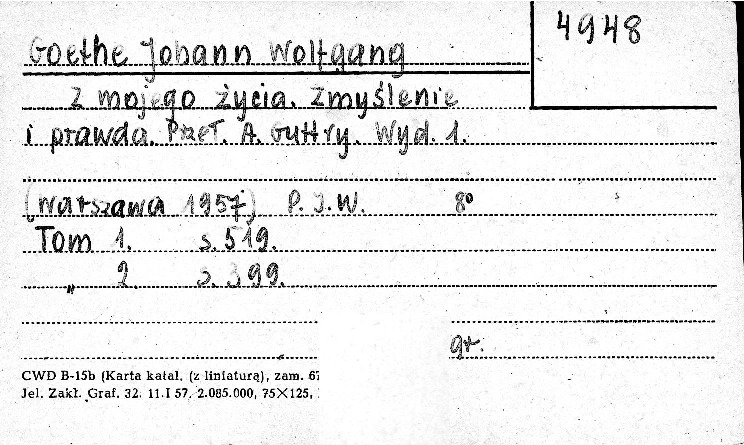 4948
Goethe Johann Wolfgang
Z mojego życia. Zmyślenie
i prawda. Przeł. A. Guttry. Wyd. 1.
(Warszawa 1957) P. I. W. 8°
Tom 1. s. 519.
„ 2 s. 399.
gr.
CWD B-15b (Karta katal. (z liniaturą), zam. 67
Jel. Zakł. Graf. 32. 11.I 57. 2.085.000, 75×125,